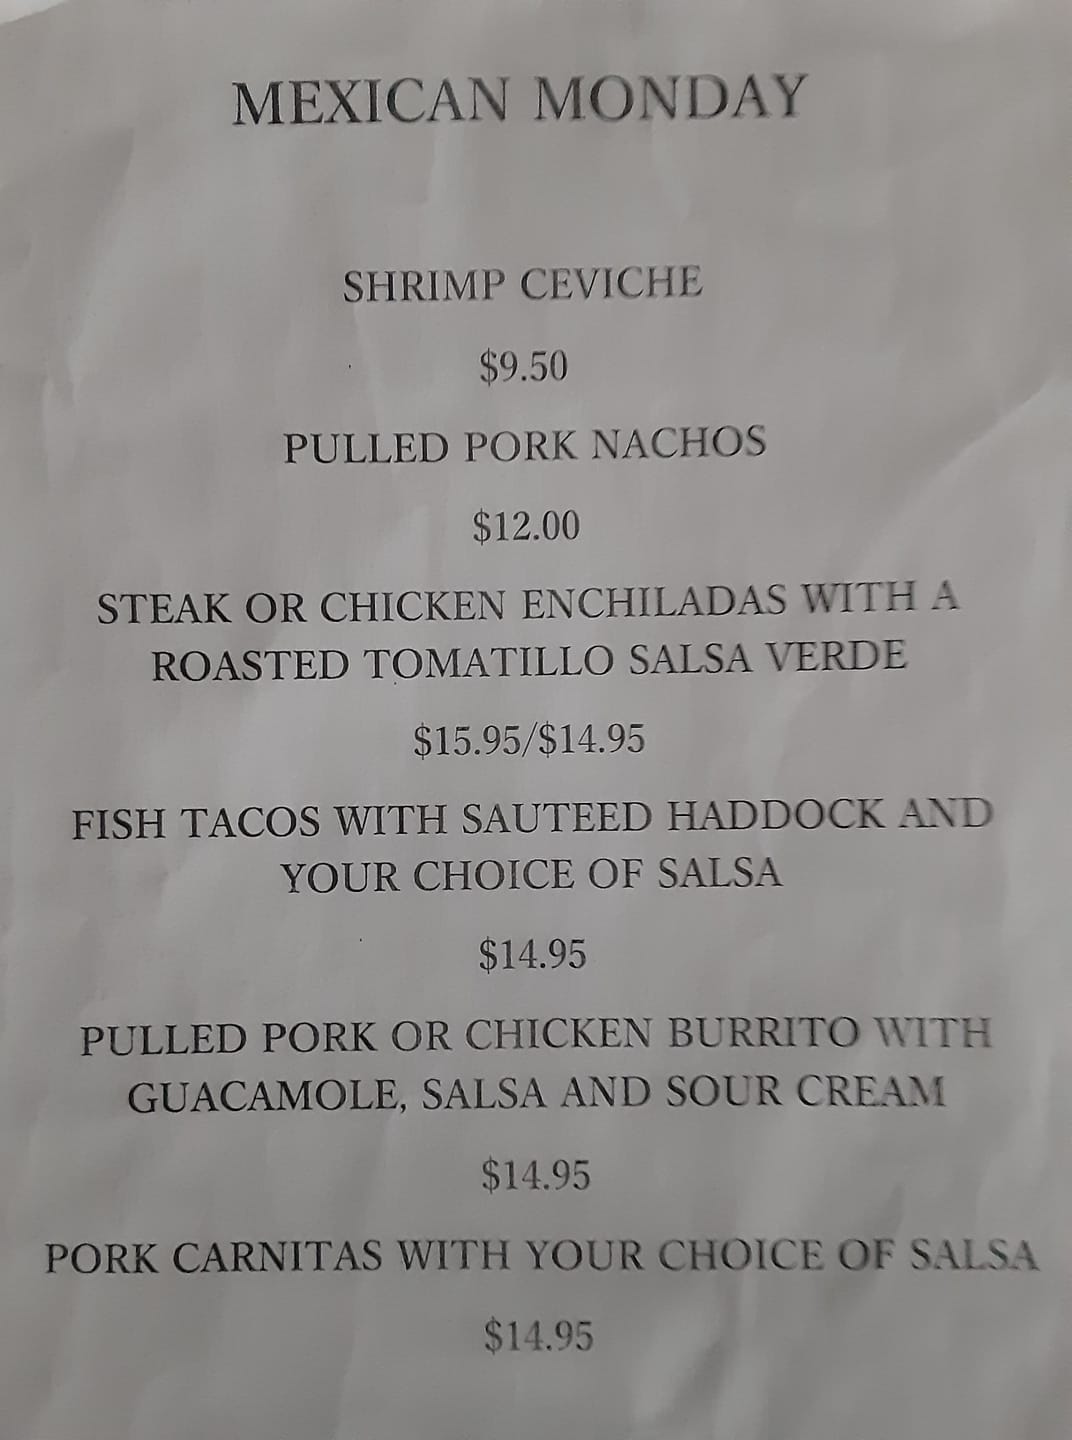 MEXICAN MONDAY
SHRIMP CEVICHE
$9.50
PULLED PORK NACHOS
$12.00
STEAK OR CHICKEN ENCHILADAS WITH A
ROASTED TOMATILLO SALSA VERDE
$15.95/$14.95
FISH TACOS WITH SAUTEED HADDOCK AND
YOUR CHOICE OF SALSA
$14.95
PULLED PORK OR CHICKEN BURRITO WITH
GUACAMOLE, SALSA AND SOUR CREAM
$14.95
PORK CARNITAS WITH YOUR CHOICE OF SALSA
$14.95